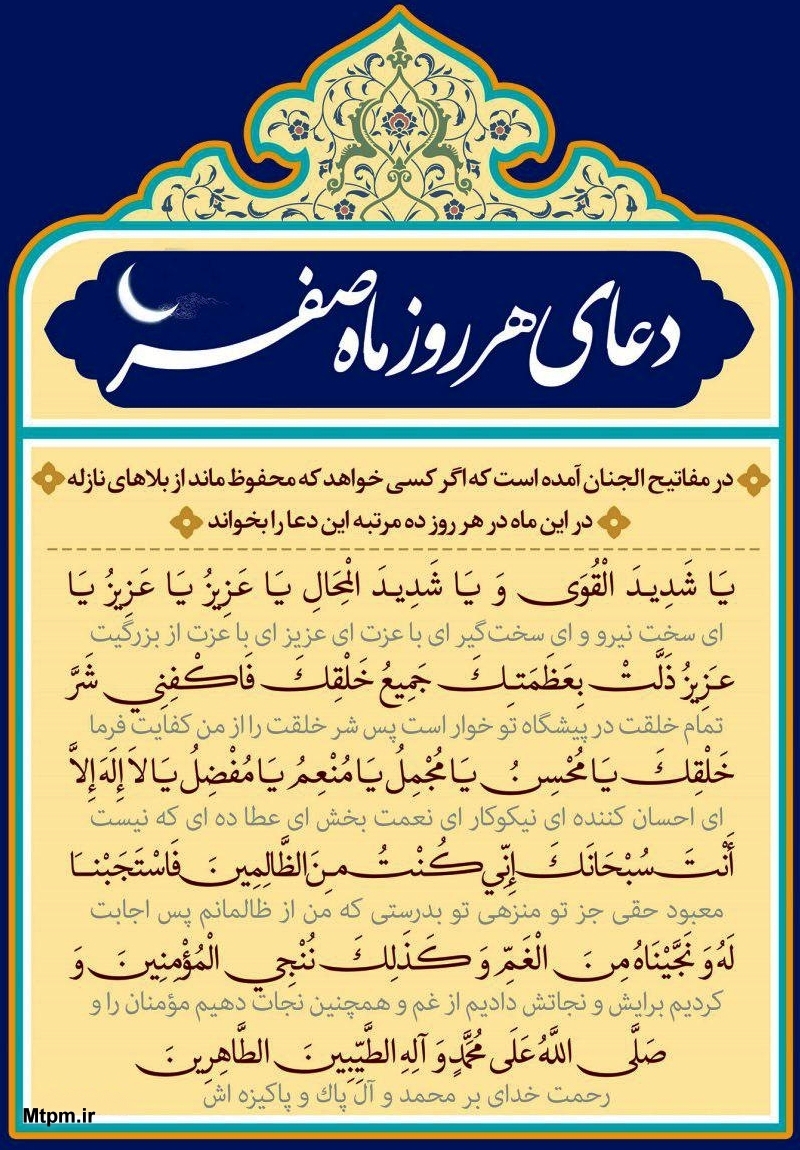 دعای هر روز ماه صفر
در مفاتیح الجنان آمده است که اگر کسی خواهد که محفوظ ماند از بلاهای نازله
در این ماه در هر روز ده مرتبه این دعا را بخواند
يَا شَدِيدَ الْقُوَى وَ يَا شَدِيدَ الْمِحَالِ يَا عَزِيزُ يَا عَزِيزُ يَا
ای سخت نیرو و ای سخت‌گیر ای با عزت ای عزیز ای با عزت از بزرگیت
عَزِيزُ ذَلَّتْ بِعَظَمَتِكَ جَمِيعُ خَلْقِكَ فَاكْفِنِي شَرَّ
تمام خلقت در پیشگاه تو خوار است پس شر خلقت را از من کفایت فرما
خَلْقِكَ يَا مُحْسِنُ يَا مُجْمِلُ يَا مُنْعِمُ يَا مُفْضِلُ يَا لاَ إِلَهَ إِلاَّ
ای احسان کننده ای نیکوکار ای نعمت بخش ای عطا ده ای که نیست
أَنْتَ سُبْحَانَكَ إِنِّي كُنْتُ مِنَ الظَّالِمِينَ فَاسْتَجَبْنَا
معبود حقی جز تو منزهی تو بدرستی که من از ظالمانم پس اجابت
لَهُ وَ نَجَّيْنَاهُ مِنَ الْغَمِّ وَ كَذَلِكَ نُنْجِي الْمُؤْمِنِينَ وَ
کردیم برایش و نجاتش دادیم از غم و همچنین نجات دهیم مؤمنان را و
صَلَّى اللَّهُ عَلَى مُحَمَّدٍ وَ آلِهِ الطَّيِّبِينَ الطَّاهِرِينَ
رحمت خدای بر محمد و آل پاك و پاکیزه اش
Mtpm.ir